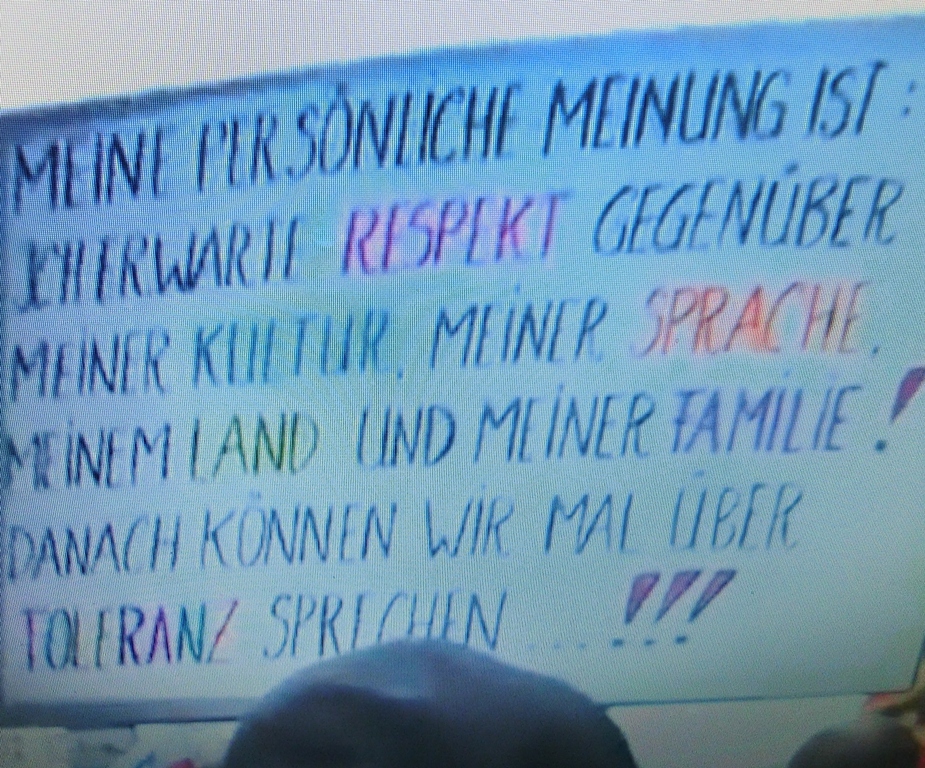 MEINE PERSÖNLICHE MEINUNG IST :
ICH ERWARTE RESPEKT GEGENÜBER
MEINER KULTUR, MEINER SPRACHE,
MEINEM LAND UND MEINER FAMILIE !
DANACH KÖNNEN WIR MAL ÜBER
TOLERANZ SPRECHEN ... !!!